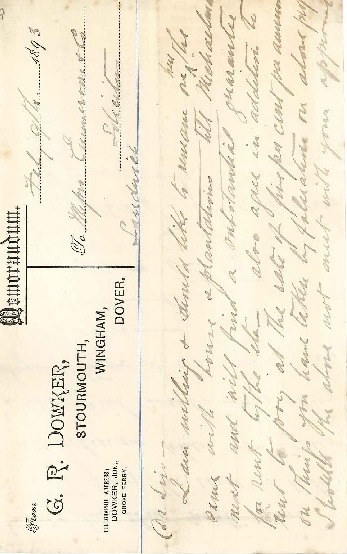 Memorandum.
From
G. R. DOWKER,
STOURMOUTH,
WINGHAM,
DOVER,
TELEGRAPHIC ADDRESS:
DOWKER, JUN.,
GROVE FERRY.
July 9th 1893
To Messrs
Solicitors
Sandwich
Dr Sirs
I am willing & should like to remain on the
same with house & plantations till Michaelmas
next and will find a substantial guarantee
for rent by the also agree in addition to
rent to pay at the rate of five per cent per annum
on things you have taken by valuation on
Should the above not meet with your approval